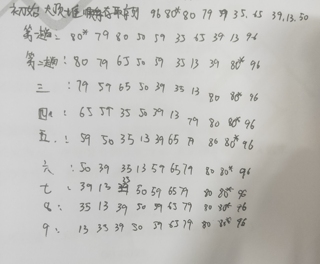 初始 大顶堆 96 80* 80 79 59 35 65 39 13 50
第一趟: 80* 79 80 50 59 35 65 39 13 96
第二趟: 80 79 65 50 59 35 13 39 80* 96
三: 79 59 65 50 39 35 13 80 80* 96
四: 65 59 35 50 39 13 79 80 80* 96
五: 59 50 35 13 39 65 79 80 80* 96
六: 50 39 35 13 59 65 79 80 80* 96
七: 39 13 35 50 59 65 79 80 80* 96
8: 35 13 39 50 59 65 79 80 80* 96
9: 13 35 39 50 59 65 79 80 80* 96